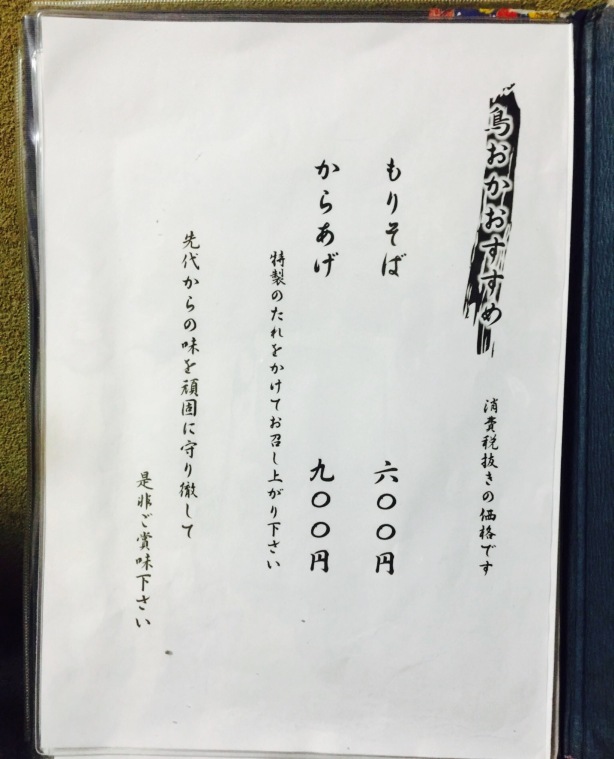 鳥おかおすすめ
消費税抜きの価格です
もりそば 六〇〇円
からあげ 九〇〇円
特製のたれをかけてお召し上がり下さい
先代からの味を頑固に守り徹して
是非ご賞味下さい